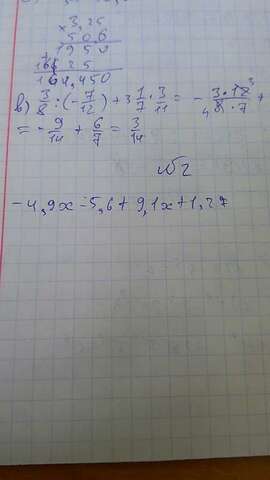 × 3,25
506
1950
+ 1625
164,450
в) 3/8 : (-7/12) + 3 1/7 · 3/11 = - 3·12³/₄8·7 +
= - 9/14 + 6/7 = 3/14
№2
-4,9x - 5,6 + 9,1x + 1,27